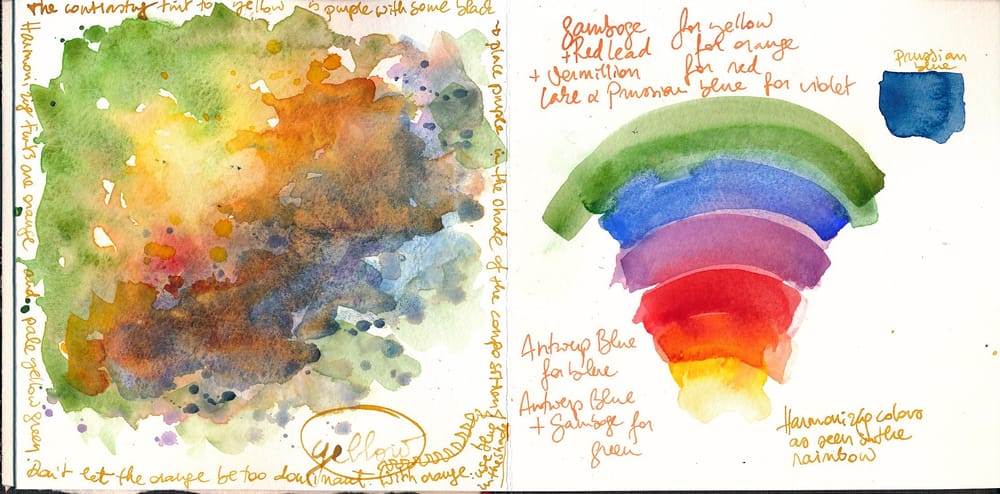 the contrasting tint to yellow is purple with some black
→ place purple in the shade of the composition
Harmonizing tints are orange and pale yellow green.
Don't let the orange be too dominant with orange.
yellow
Gamboge for yellow
+ Red lead for orange
+ Vermillion for red
Lake & Prussian blue for violet
Prussian
blue
Antwerp Blue
for blue
Antwerp Blue
+ Gamboge for
green
Harmonizing colors
as seen in the
rainbow